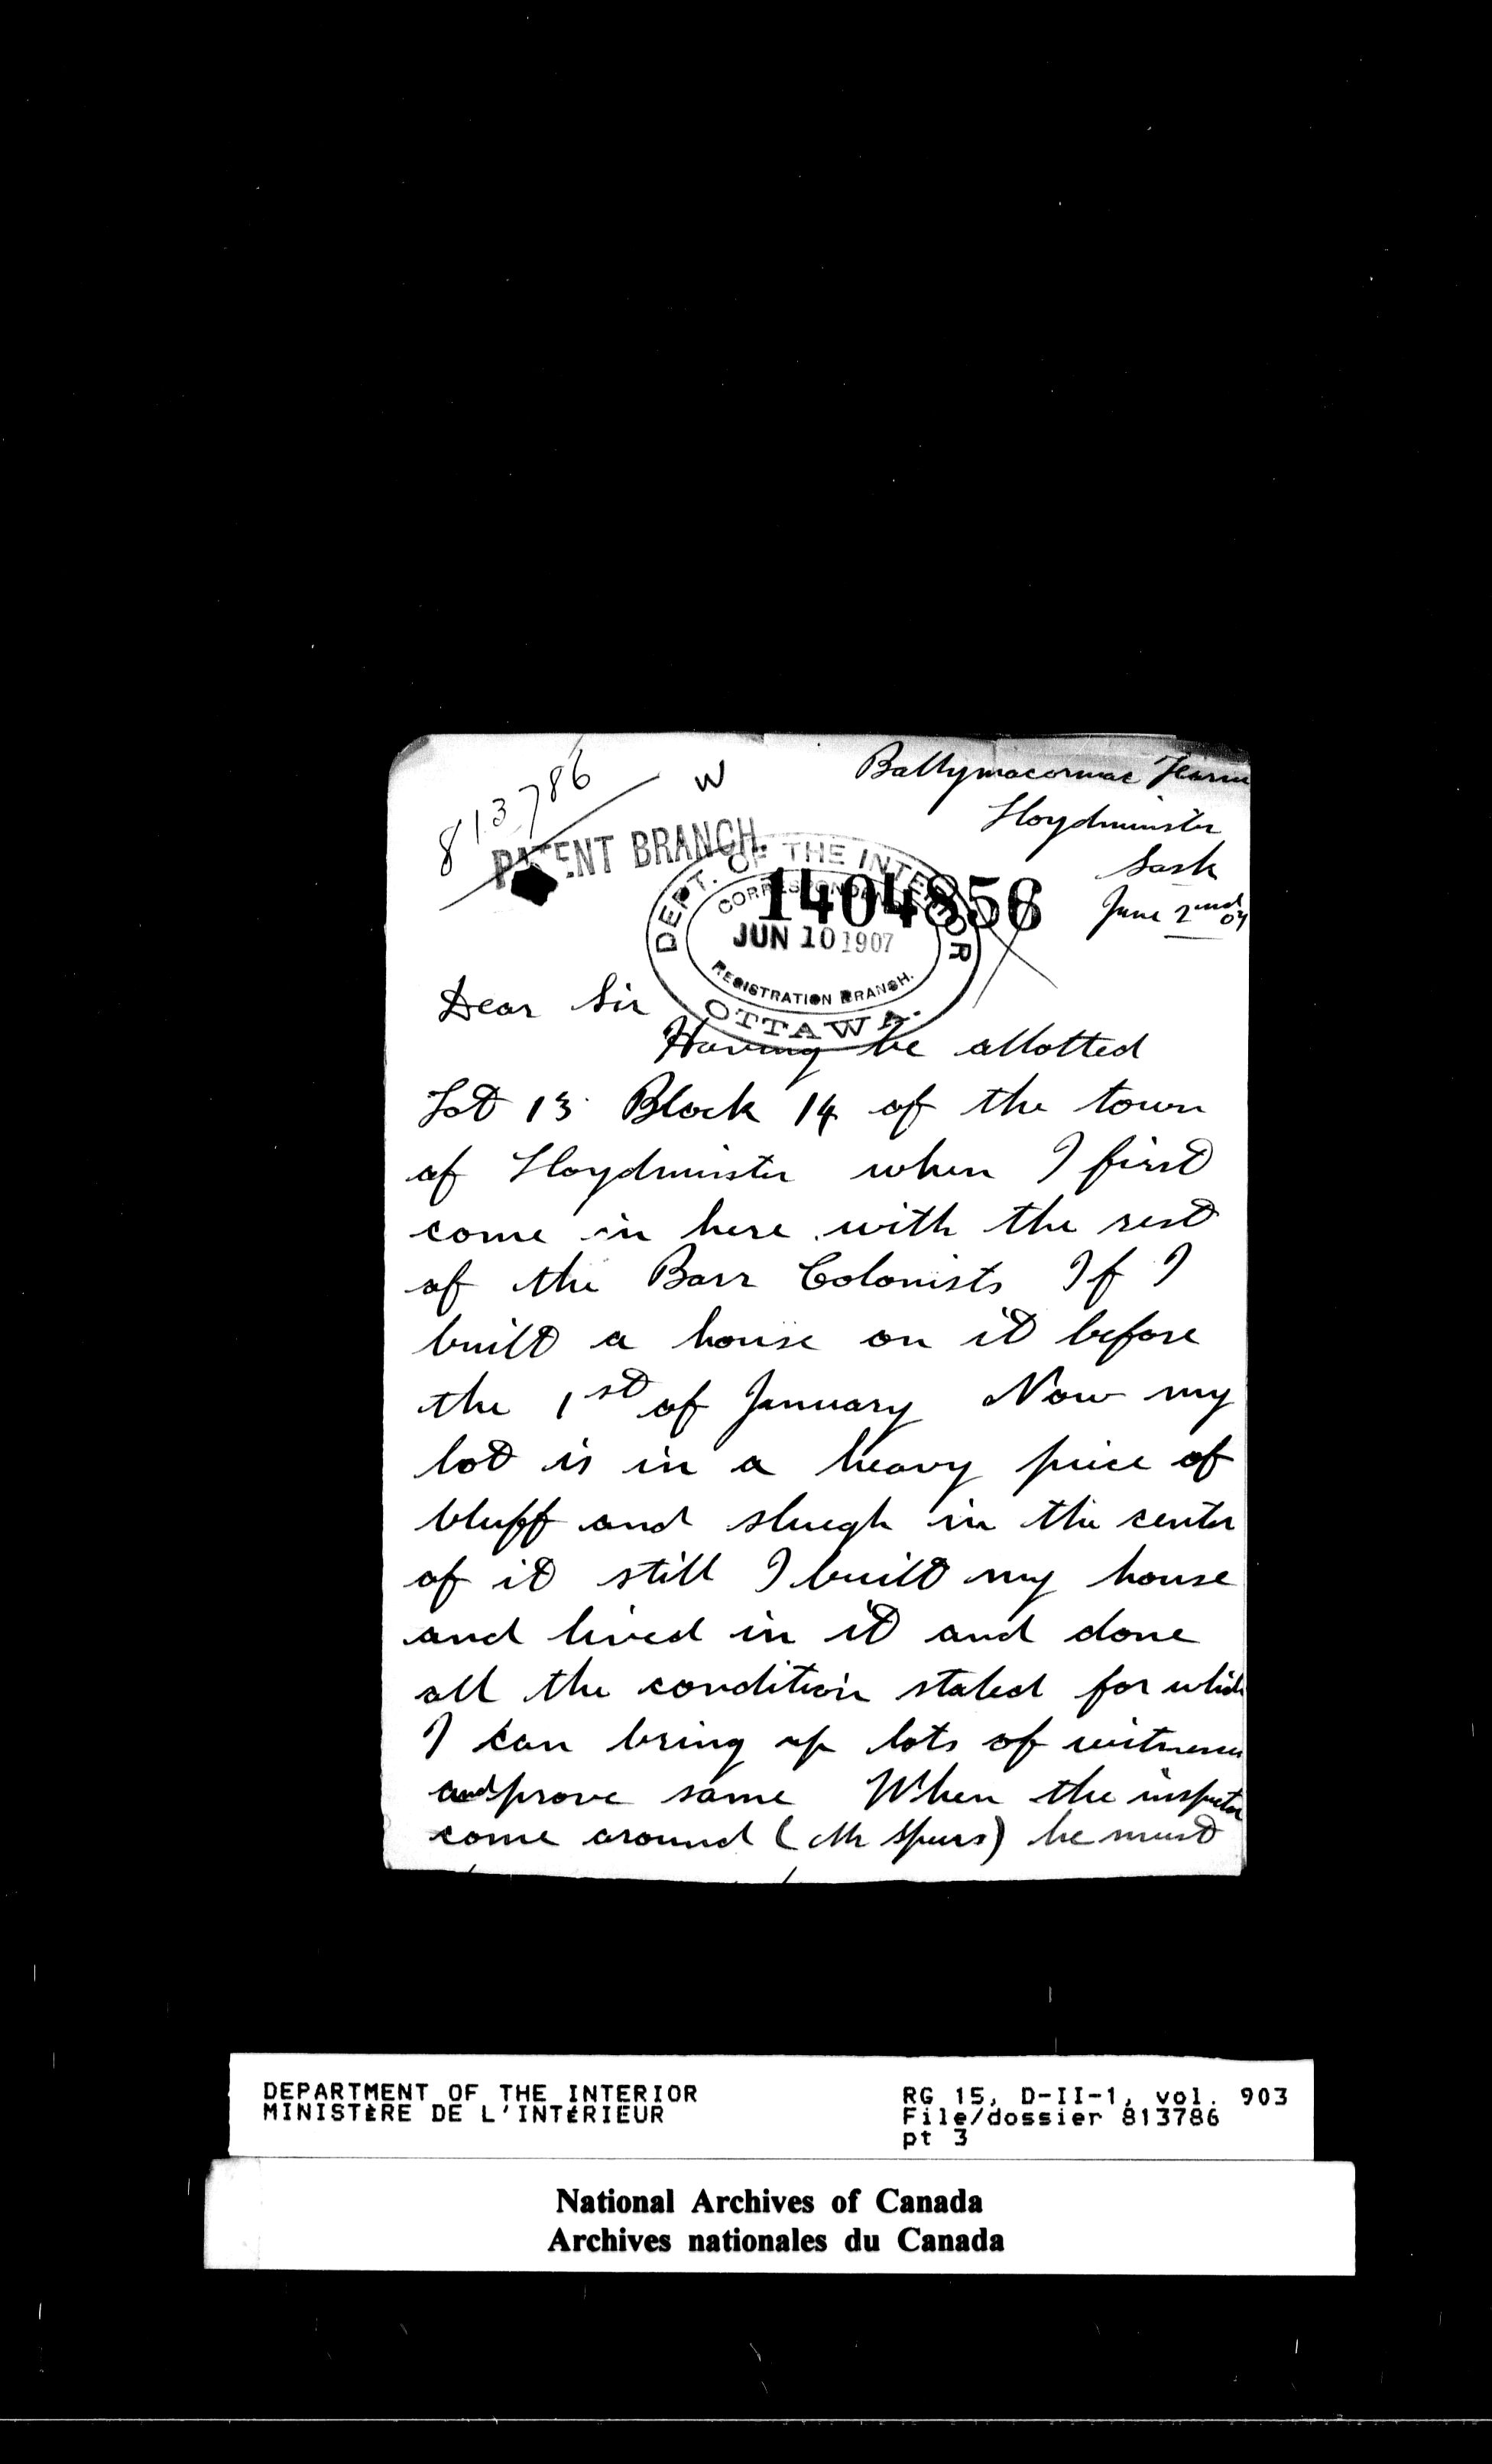 813786
W
Ballymacormac Farm
Lloydminster
Sask
June 2nd 07
PATENT BRANCH.
DEPT. OF THE INTERIOR
CORRESPONDENCE
1404856
JUN 10 1907
REGISTRATION BRANCH.
OTTAWA.
Dear Sir
Having be allotted
Lot 13 Block 14 of the town
of Lloydminster when I first
come in here with the rest
of the Barr Colonists If I
built a house on it before
the 1st of January Now my
lot is in a heavy piece of
bluff and sluegh in the center
of it still I built my house
and lived in it and done
all the condition stated for which
I can bring up lots of witnesses
and prove same When the inspector
come around (Mr Spurs) he must
DEPARTMENT OF THE INTERIOR
MINISTÈRE DE L'INTÉRIEUR
RG 15, D-II-1, vol. 903
File/dossier 813786
pt 3
National Archives of Canada
Archives nationales du Canada